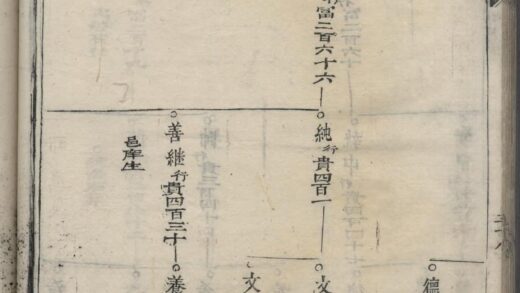 富二百六十六
德
純行貴四百一
文
文
善継行貴四百三十
邑庠生